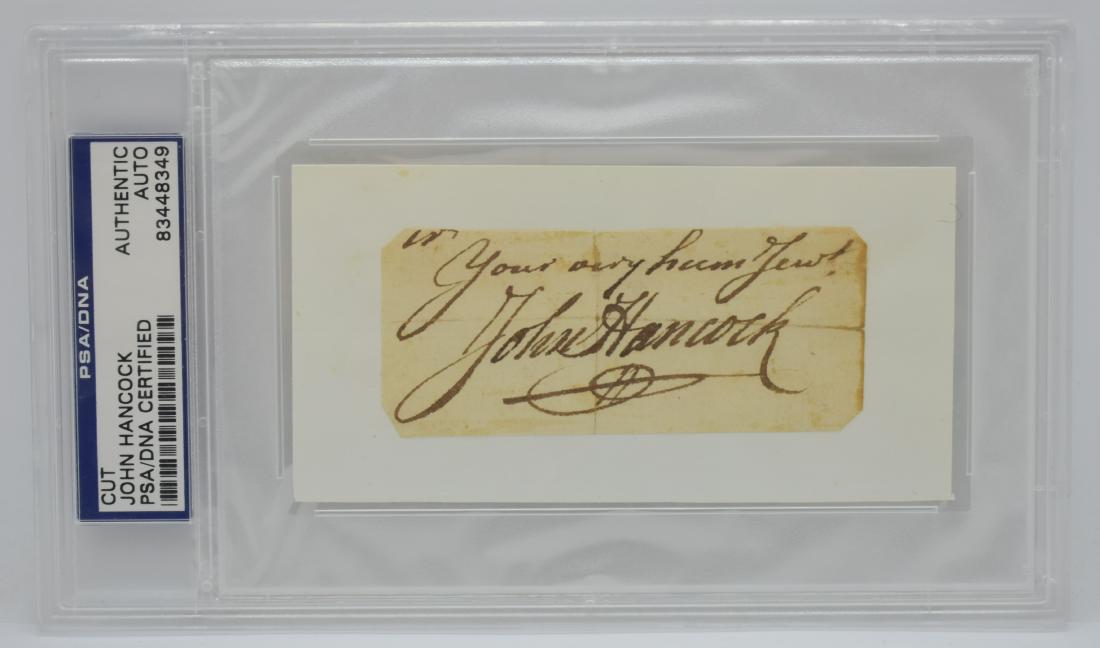 PSA/DNA
CUT
JOHN HANCOCK
PSA/DNA CERTIFIED
AUTHENTIC
AUTO
83448349
Your very hum Servt.
John Hancock